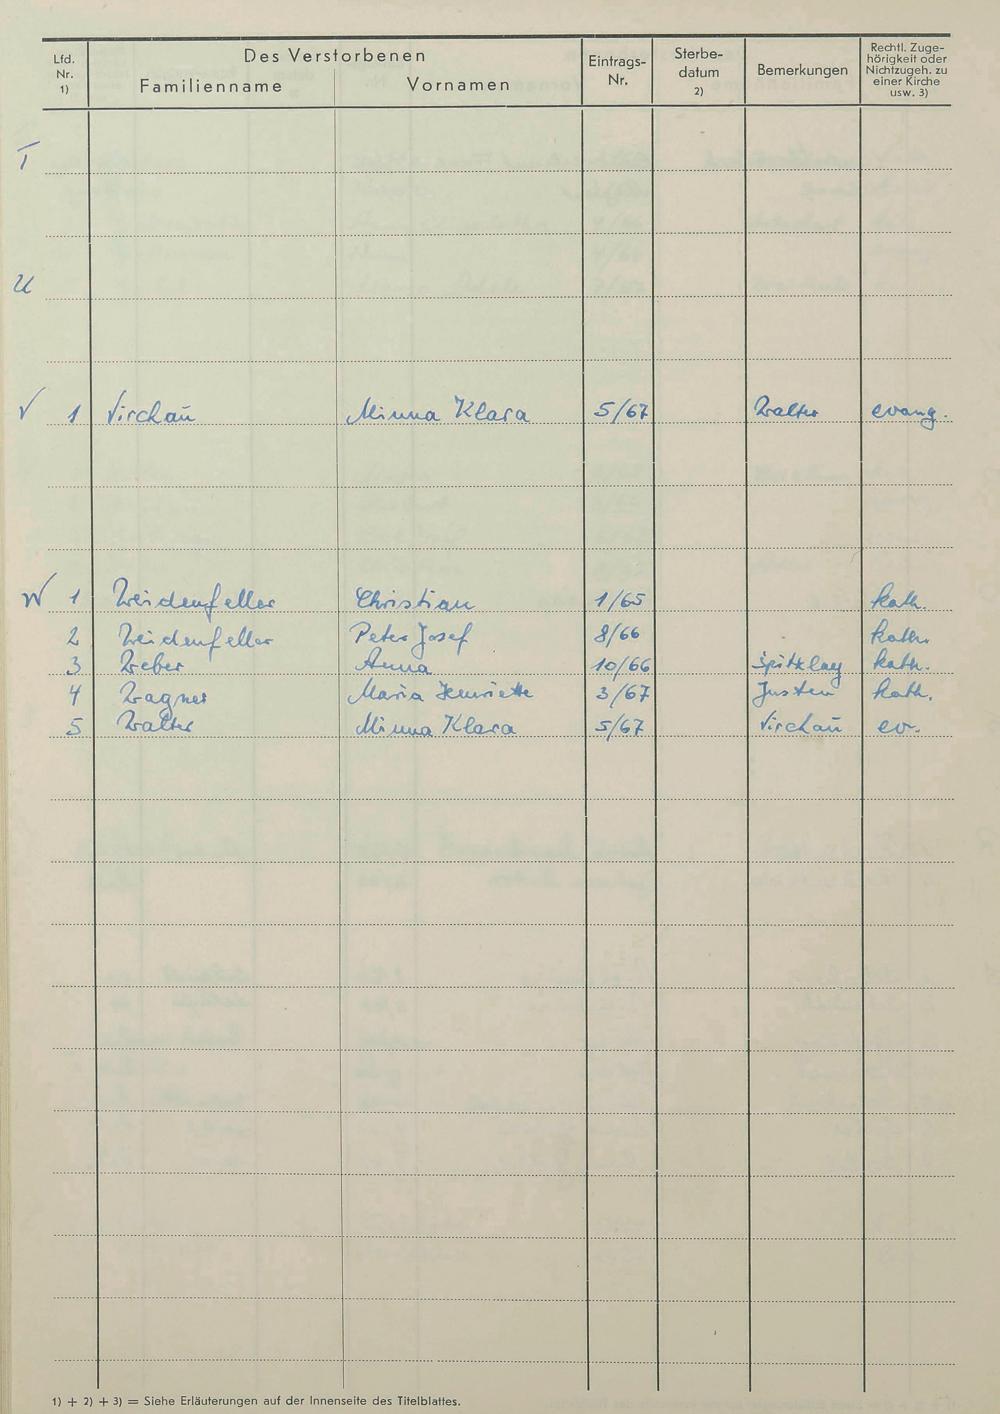 Lfd. Nr. 1) Des Verstorbenen Familienname Vornamen Eintrags-Nr. Sterbe-datum 2) Bemerkungen Rechtl. Zuge-hörigkeit oder Nichtzugeh. zu einer Kirche usw. 3)
T
U
V 1 Virchaŭ Minna Klara 5/67 Walter evang.
W 1 Weidenfeller Christian 1/65 kath.
2 Weidenfeller Peter Josef 8/66 kath.
3 Weber Anna 10/66 Spitzlay kath.
4 Wagner Maria Henriette 3/67 Justen kath.
5 Walter Minna Klara 5/67 Virchaŭ ev.
1) + 2) + 3) = Siehe Erläuterungen auf der Innenseite des Titelblattes.